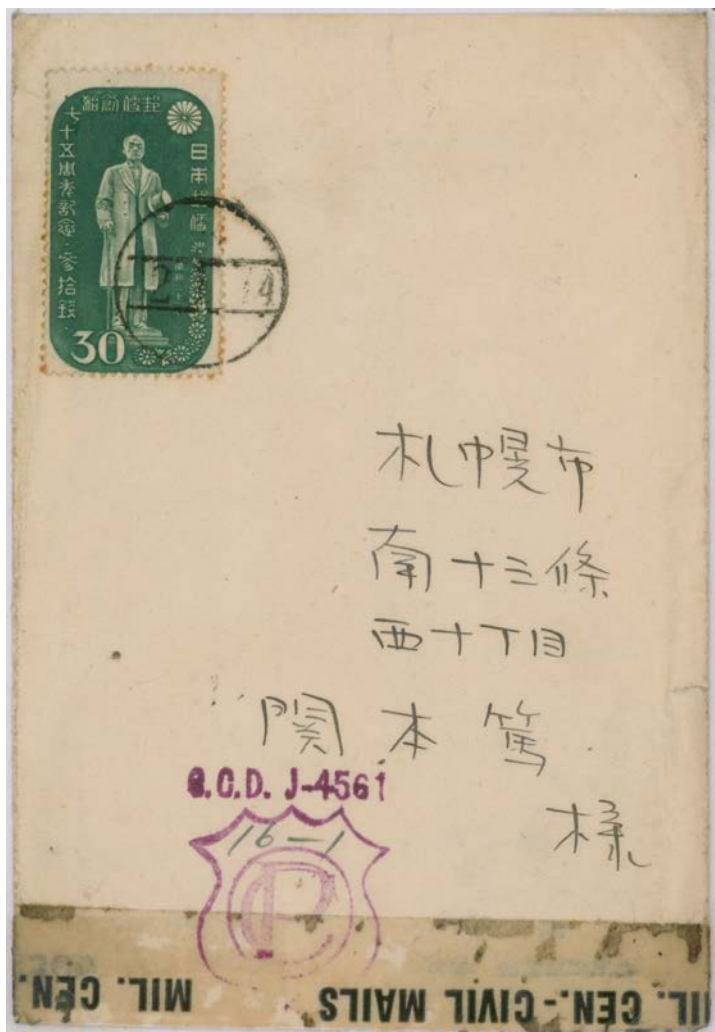 郵便創始
七十五周年記念・参拾銭
日本郵便
30
2
14
札幌市
南十三條
西十丁目
関本篤
様
C.C.D. J-4561
16-1
CP
MIL. CEN.-CIVIL MAILS
MIL. CEN.